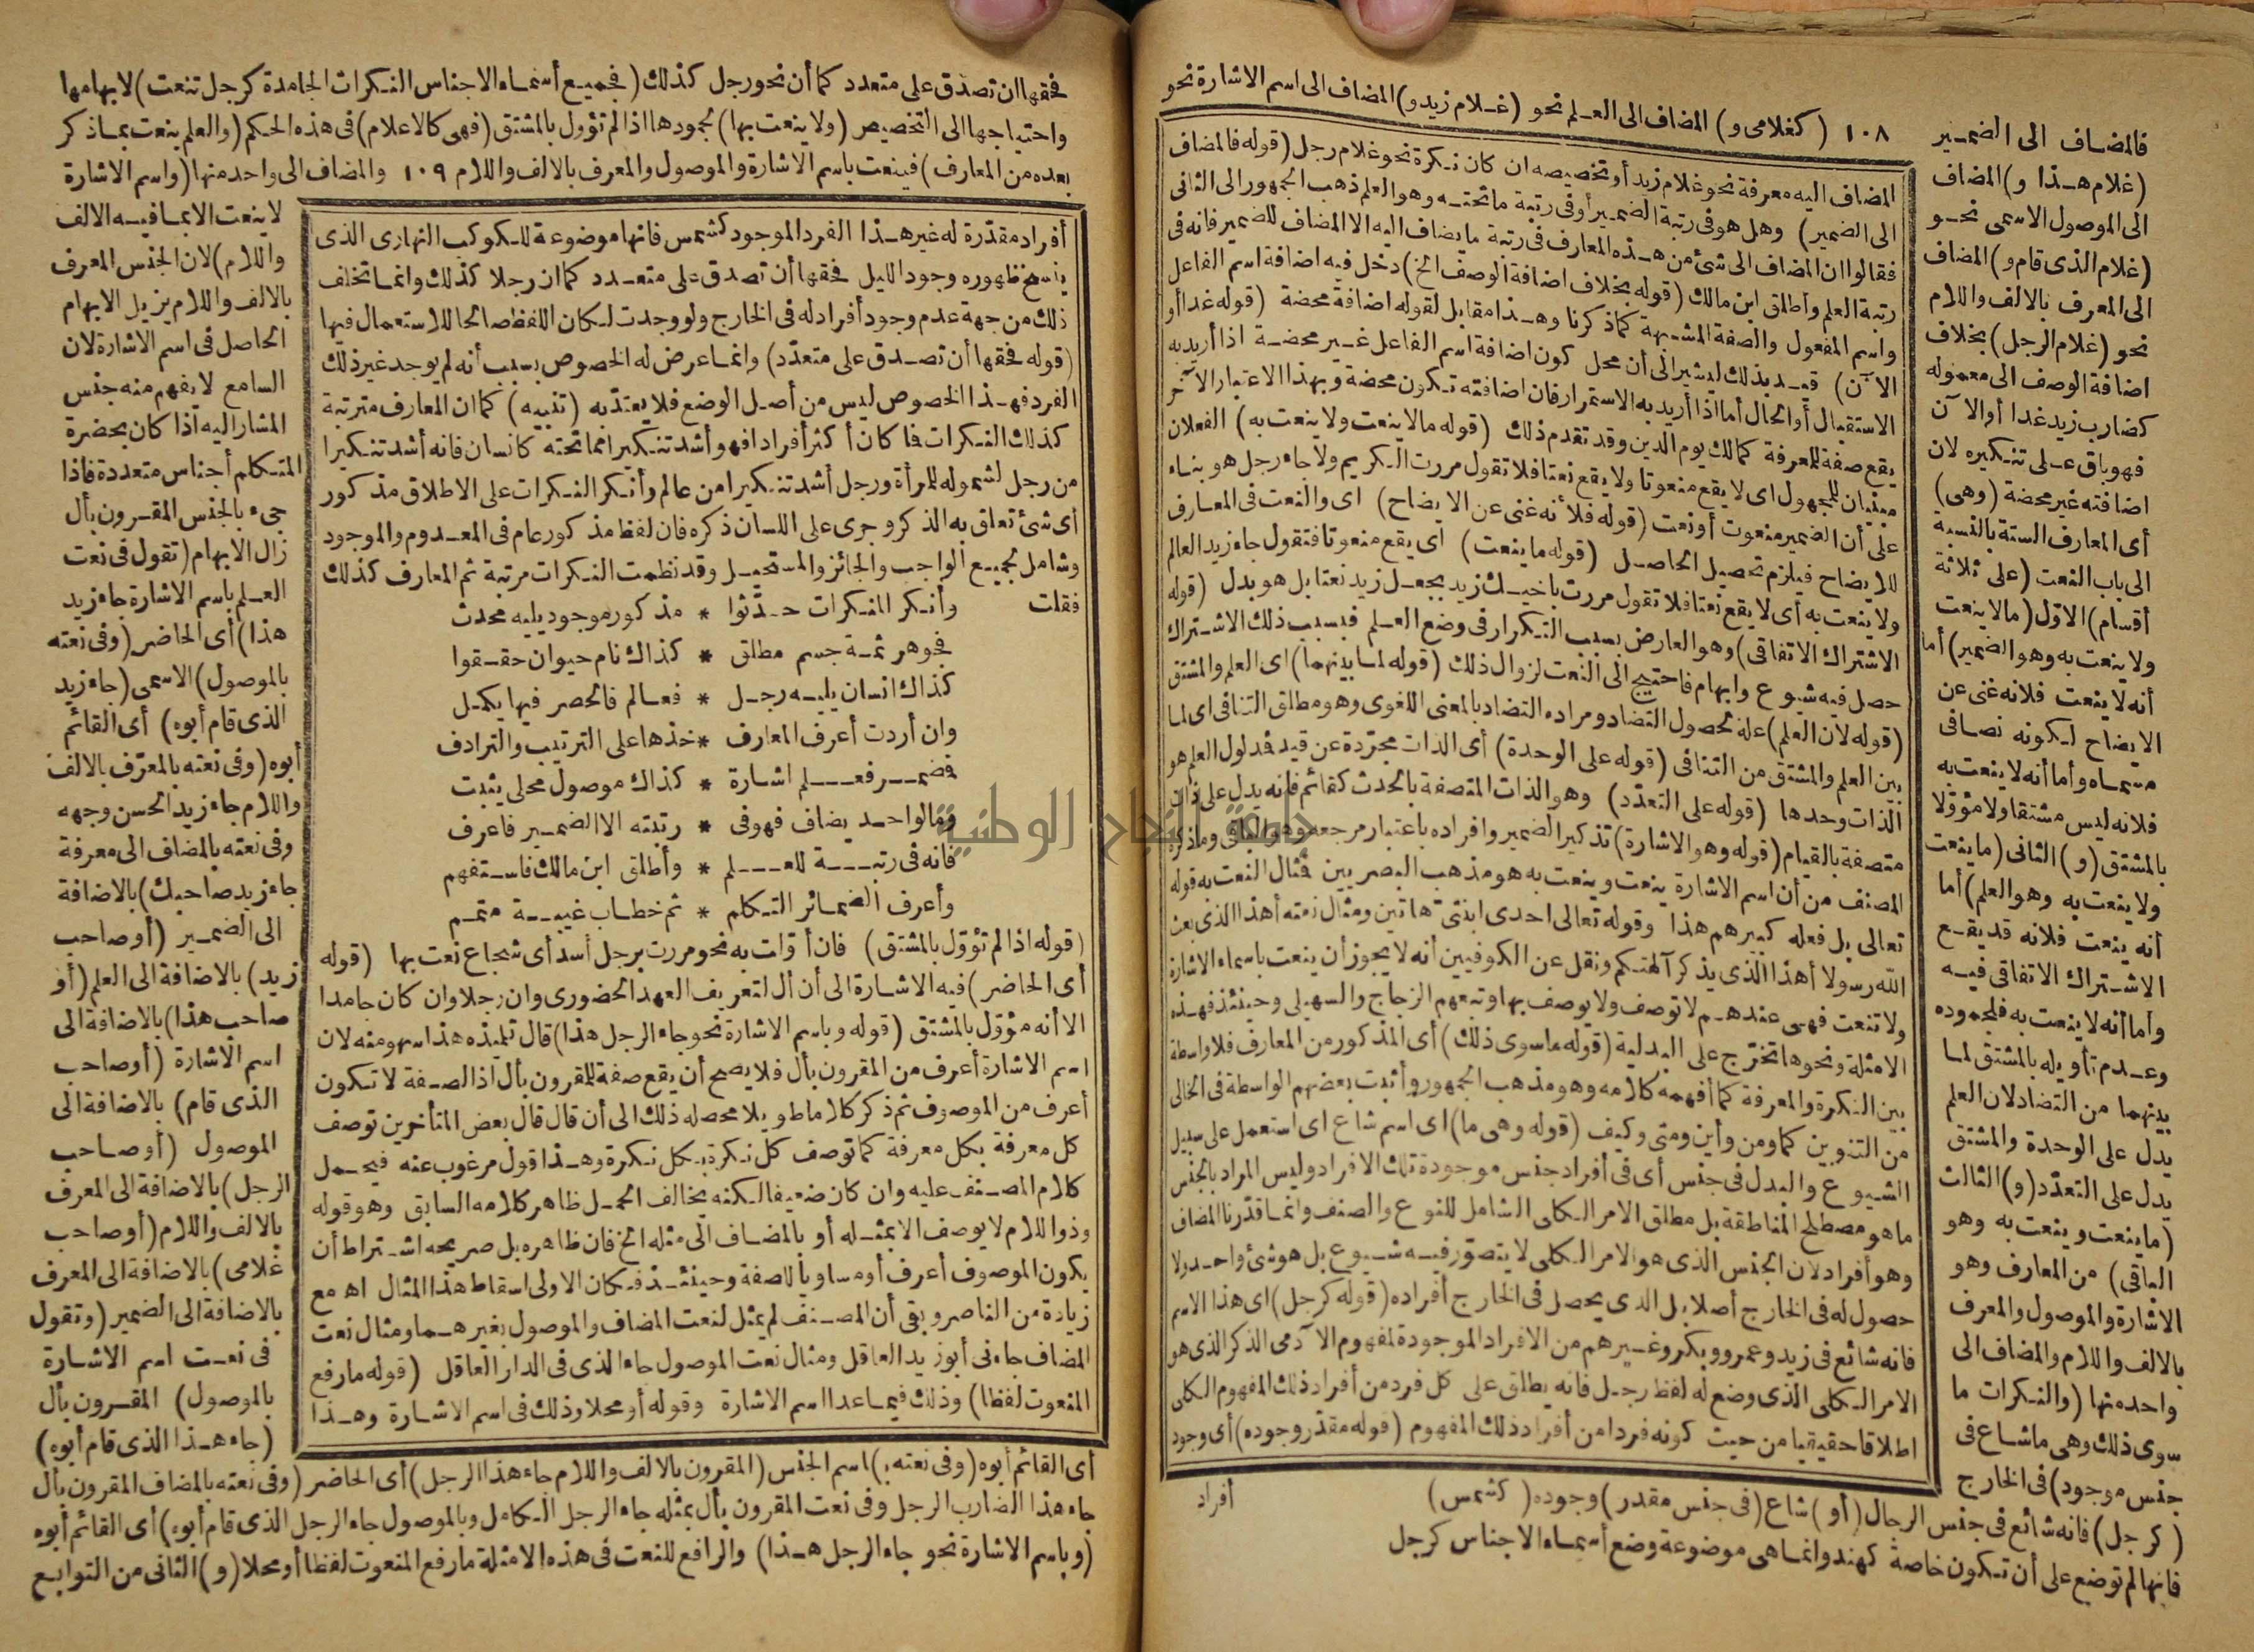 ١٠٨ (كغلامى و) المضاف الى العلم نحو (غلام زيد و) المضاف الى اسم الاشارة نحو
فالمضاف الى الضمير
(غلام هذا و) المضاف
الى الموصول الاسمى نحو
(غلام الذى قام و) المضاف
الى المعرف بالالف واللام
نحو (غلام الرجل) بخلاف
اضافة الوصف الى معموله
كضارب زيد غدا أو الآن
فهو باق على تنكيره لان
اضافته غير محضة (وهى)
أى المعارف الستة بالنسبة
الى باب النعت (على ثلاثة
أقسام) الاول (مالا ينعت
ولا ينعت به وهو الضمير) أما
أنه لا ينعت فلانه غنى عن
الايضاح لكونه نصا فى
مسماه وأما أنه لا ينعت به
فلانه ليس مشتقا ولا مؤولا
بالمشتق (و) الثانى (ما ينعت
ولا ينعت به وهو العلم) أما
أنه ينعت فلانه قد يقع
الاشتراك الاتفاقى فيه
وأما أنه لا ينعت به فلجموده
وعدم تأويله بالمشتق لما
بينهما من التضاد لان العلم
يدل على الوحدة والمشتق
يدل على التعدد (و) الثالث
(ما ينعت وينعت به وهو
الباقى) من المعارف وهو
الاشارة والموصول والمعرف
بالالف واللام والمضاف الى
واحد منها (والنكرات ما
سوى ذلك وهى ما شاع فى
جنس موجود) فى الخارج
(كرجل) فانه شائع فى جنس الرجال (أو) شاع (فى جنس مقدر) وجوده (كشمس)
فانها لم توضع على أن تكون خاصة كهند وانما هى موضوعة وضع أسماء الاجناس كرجل
المضاف اليه معرفة نحو غلام زيد أو تخصيصه ان كان نكرة نحو غلام رجل (قوله فالمضاف
الى الضمير) وهل هو فى رتبة الضمير أو فى رتبة ما تحته وهو العلم ذهب الجمهور الى الثانى
فقالوا ان المضاف الى شئ من هذه المعارف فى رتبة ما يضاف اليه الا المضاف للضمير فانه فى
رتبة العلم وأطلق ابن مالك (قوله بخلاف اضافة الوصف الخ) دخل فيه اضافة اسم الفاعل
واسم المفعول والصفة المشبهة كما ذكرنا وهذا مقابل لقوله اضافة محضة (قوله غدا أو
الآن) قيد بذلك ليشير الى أن محل كون اضافة اسم الفاعل غير محضة اذا أريد به
الاستقبال أو الحال أما اذا أريد به الاستمرار فان اضافته تكون محضة وبهذا الاعتبار الآخر
يقع صفة للمعرفة كمالك يوم الدين وقد تقدم ذلك (قوله مالا ينعت ولا ينعت به) الفعلان
مبنيان للمجهول اى لا يقع منعوتا ولا يقع نعتا فلا تقول مررت الكريم ولا جاء رجل هو بناء
على أن الضمير منعوت أو نعت (قوله فلأنه غنى عن الايضاح) اى والنعت فى المعارف
للايضاح فيلزم تحصيل الحاصل (قوله ما ينعت) أى يقع منعوتا فتقول جاء زيد العالم
ولا ينعت به أى لا يقع نعتا فلا تقول مررت باخيك زيد بجعل زيد نعتا بل هو بدل (قوله
الاشتراك الاتفاقى) وهو العارض بسبب التكرار فى وضع العلم فبسبب ذلك الاشتراك
حصل فيه شيوع وابهام فاحتيج الى النعت لزوال ذلك (قوله لما بينهما) اى العلم والمشتق
(قوله لان العلم) علة لحصول التضاد ومراده التضاد بالمعنى اللغوى وهو مطلق التنافى اى لما
بين العلم والمشتق من التنافى (قوله على الوحدة) أى الذات مجردة عن قيد فدلول العلم هو
الذات وحدها (قوله على التعدد) وهو الذات المتصفة بالحدث كقائم فانه يدل على ذات
متصفة بالقيام (قوله وهو الاشارة) تذكير الضمير وافراده باعتبار مرجعه وهو الباقى وما ذكره
المصنف من أن اسم الاشارة ينعت وينعت به هو مذهب البصريين فمثال النعت به قوله
تعالى بل فعله كبيرهم هذا وقوله تعالى احدى ابنتى هاتين ومثال نعته أهذا الذى بعث
الله رسولا أهذا الذى يذكر آلهتكم ونقل عن الكوفيين أنه لا يجوز أن ينعت باسماء الاشارة
ولا تنعت فهى عندهم لا توصف ولا يوصف بها وتبعهم الزجاج والسهيلى وحينئذ فهذه
الامثلة ونحوها تخرج على البدلية (قوله ما سوى ذلك) أى المذكور من المعارف فلا واسطة
بين النكرة والمعرفة كما أفهمه كلامه وهو مذهب الجمهور وأثبت بعضهم الواسطة فى الخالى
من التنوين كما ومن وأين ومتى وكيف (قوله وهى ما) اى اسم شاع اى استعمل على سبيل
الشيوع والبدل فى جنس أى فى أفراد جنس موجودة تلك الافراد وليس المراد بالجنس
ما هو مصطلح المناطقة بل مطلق الامر الكلى الشامل للنوع والصنف وانما قدرنا المضاف
وهو أفراد لان الجنس الذى هو الامر الكلى لا يتصور فيه شيوع بل هو شئ واحد ولا
حصول له فى الخارج أصلا بل الذى يحصل فى الخارج أفراده (قوله كرجل) اى هذا الاسم
فانه شائع فى زيد وعمرو وبكر وغيرهم من الافراد الموجودة لمفهوم الآدمى الذكر الذى هو
الامر الكلى الذى وضع له لفظ رجل فانه يطلق على كل فرد من أفراد ذلك المفهوم الكلى
اطلاقا حقيقيا من حيث كونه فردا من أفراد ذلك المفهوم (قوله مقدر وجوده) أى وجود
أفراد
فحقها ان تصدق على متعدد كما أن نحو رجل كذلك (فجميع أسماء الاجناس النكرات الجامدة كرجل تنعت) لابهامها
واحتياجها الى التخصيص (ولا ينعت بها) لجمودها اذا لم تؤول بالمشتق (فهى كالاعلام) فى هذه الحكم (والعلم ينعت بما ذكر
بعده من المعارف) فينعت باسم الاشارة والموصول والمعرف بالالف واللام ١٠٩ والمضاف الى واحد منها (واسم الاشارة
لا ينعت الا بما فيه الالف
واللام) لان الجنس المعرف
بالالف واللام يزيل الابهام
الحاصل فى اسم الاشارة لان
السامع لا يفهم منه جنس
المشار اليه اذا كان بحضرة
المتكلم أجناس متعددة فاذا
جىء بالجنس المقرون بأل
زال الابهام (تقول فى نعت
العلم باسم الاشارة جاء زيد
هذا) أى الحاضر (وفى نعته
بالموصول) الاسمى (جاء زيد
الذى قام أبوه) أى القائم
أبوه (وفى نعته بالمعرف بالالف
واللام جاء زيد الحسن وجهه
وفى نعته بالمضاف الى معرفة
جاء زيد صاحبك) بالاضافة
الى الضمير (أو صاحب
زيد) بالاضافة الى العلم (أو
صاحب هذا) بالاضافة الى
اسم الاشارة (أو صاحب
الذى قام) بالاضافة الى
الموصول (أو صاحب
الرجل) بالاضافة الى المعرف
بالالف واللام (أو صاحب
غلامى) بالاضافة الى المعرف
بالاضافة الى الضمير (وتقول
فى نعت اسم الاشارة
بالموصول) المقرون بأل
(جاء هذا الذى قام أبوه)
أى القائم أبوه (وفى نعته ب) اسم الجنس (المقرون بالالف واللام جاء هذا الرجل) أى الحاضر (وفى نعته بالمضاف المقرون بأل
جاء هذا الضارب الرجل وفى نعت المقرون بأل بمثله جاء الرجل الكامل وبالموصول جاء الرجل الذى قام أبوه) أى القائم أبوه
(وباسم الاشارة نحو جاء الرجل هذا) والرافع للنعت فى هذه الامثلة ما رفع المنعوت لفظا أو محلا (و) الثانى من التوابع
أفراد مقدرة له غير هذا الفرد الموجود كشمس فانها موضوعة للكوكب النهارى الذى
ينسخ ظهوره وجود الليل فحقها أن تصدق على متعدد كما ان رجلا كذلك وانما تخلف
ذلك من جهة عدم وجود أفراد له فى الخارج ولو وجدت لكان اللفظ صالحا للاستعمال فيها
(قوله فحقها أن تصدق على متعدد) وانما عرض له الخصوص بسبب أنه لم يوجد غير ذلك
الفرد فهذا الخصوص ليس من أصل الوضع فلا يعتد به (تنبيه) كما ان المعارف مترتبة
كذلك النكرات فما كان أكثر أفرادا فهو أشد تنكيرا مما تحته كانسان فانه أشد تنكيرا
من رجل لشموله للمرأة ورجل أشد تنكيرا من عالم وأنكر النكرات على الاطلاق مذكور
أى شئ تعلق به الذكر وجرى على اللسان ذكره فان لفظ مذكور عام فى المعدوم والموجود
وشامل لجميع الواجب والجائز والمستحيل وقد نظمت النكرات مرتبة ثم المعارف كذلك
فقلت وأنكر المنكرات حدثوا * مذكور موجود يليه محدث
فجوهر ثمة جسم مطلق * كذاك نام حيوان حققوا
كذاك انسان يليه رجل * فعالم فانحصر فيها يكمل
وان أردت أعرف المعارف * خذها على الترتيب والترادف
فضمير فعلم اشارة * كذاك موصول محلى يثبت
وما لواحد يضاف فهو فى * رتبته الا الضمير فاعرف
فانه فى رتبة للعلم * وأطلق ابن مالك فاستفهم
وأعرف الضمائر التكلم * ثم خطاب غيبة متمم
(قوله اذا لم تؤول بالمشتق) فان أولت به نحو مررت برجل أسد أى شجاع نعت بها (قوله
أى الحاضر) فيه الاشارة الى أن أل لتعريف العهد الحضورى وان رجلا وان كان جامدا
الا أنه مؤول بالمشتق (قوله وباسم الاشارة نحو جاء الرجل هذا) قال تلميذه هذا سهو منه لان
اسم الاشارة أعرف من المقرون بأل فلا يصح أن يقع صفة للمقرون بأل اذ الصفة لا تكون
أعرف من الموصوف ثم ذكر كلاما طويلا محصله ذلك الى أن قال قال بعض المتأخرين توصف
كل معرفة بكل معرفة كما توصف كل نكرة بكل نكرة وهذا قول مرغوب عنه فيحمل
كلام المصنف عليه وان كان ضعيفا لكنه يخالف الحمل ظاهر كلامه السابق وهو قوله
وذو اللام لا يوصف الا بمثله أو بالمضاف الى مثله الخ فان ظاهره بل صريحه اشتراط أن
يكون الموصوف أعرف أو مساويا للصفة وحينئذ فكان الاولى اسقاط هذا المثال اه مع
زيادة من الناصر وبقى أن المصنف لم يمثل لنعت المضاف والموصول بغيرهما ومثال نعت
المضاف جاءنى أبو زيد العاقل ومثال نعت الموصول جاء الذى فى الدار العاقل (قوله ما رفع
المنعوت لفظا) وذلك فيما عدا اسم الاشارة وقوله أو محلا وذلك فى اسم الاشارة وهذا
جامعة النجاح الوطنية